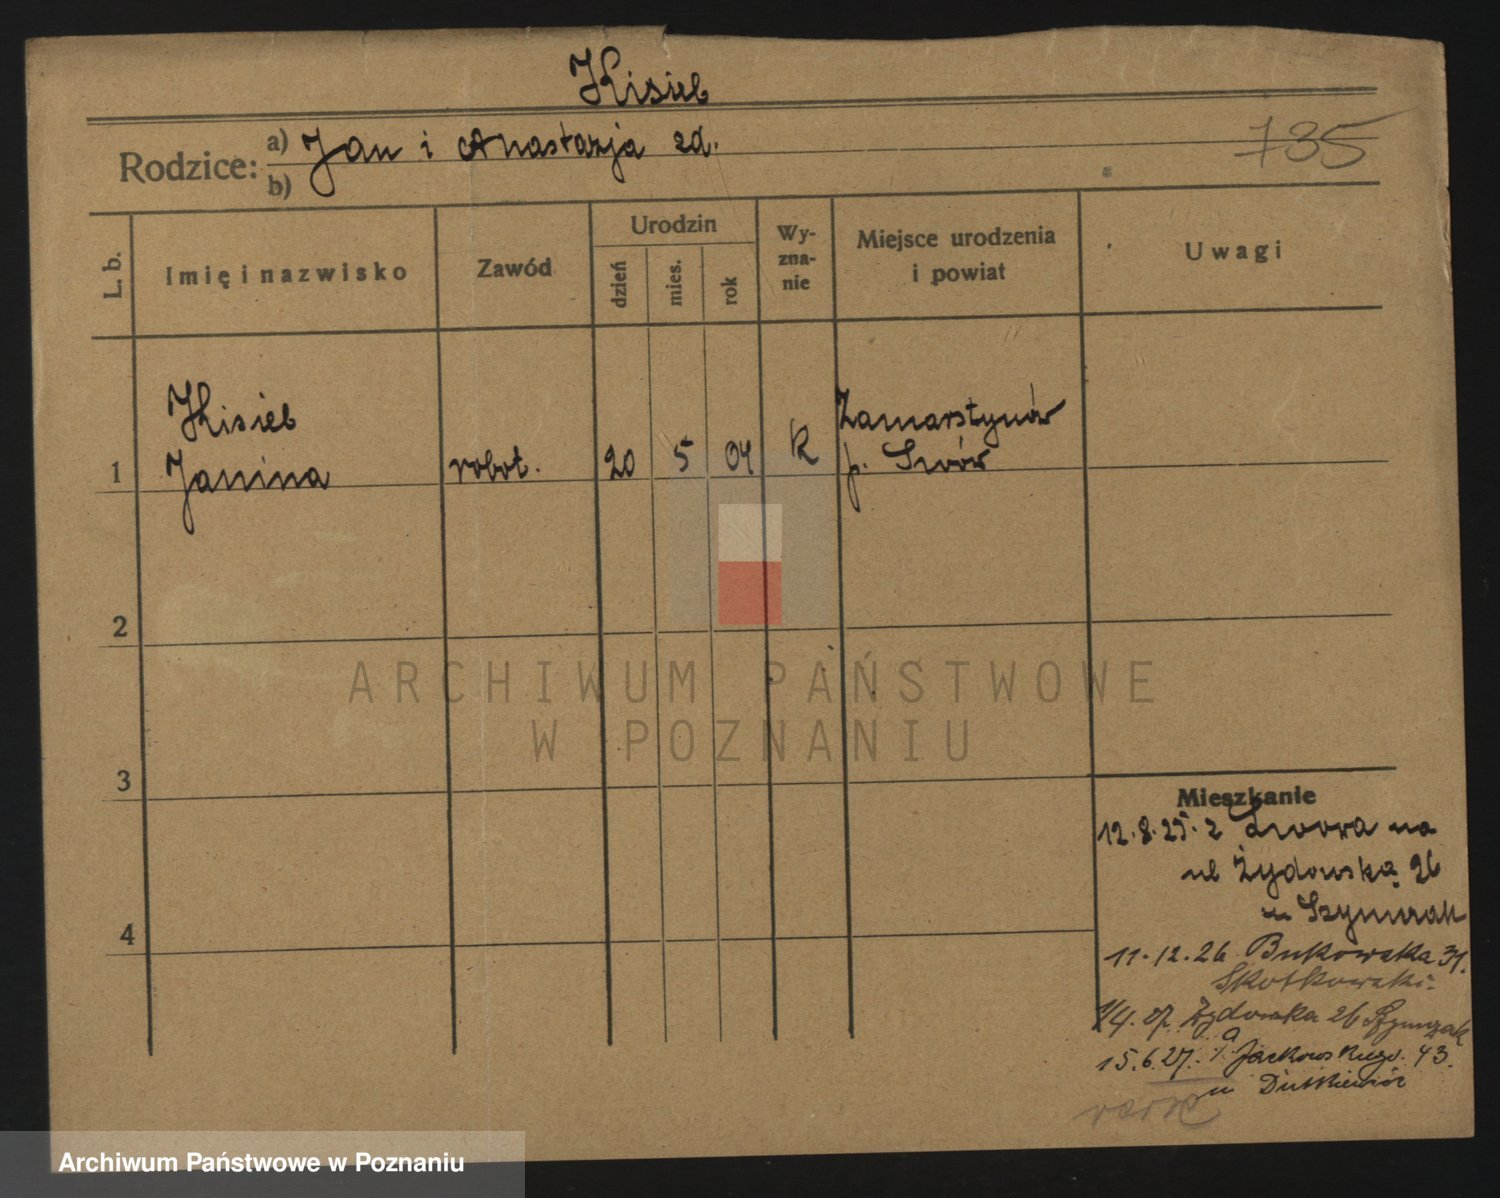 Kisiel
Rodzice: a) Jan i Anastazja zd.
b)
735
L. b.
Imię i nazwisko
Zawód
Urodzin
dzień
mies.
rok
Wy-
zna-
nie
Miejsce urodzenia
i powiat
Uwagi
Kisiel
1 Janina robot. 20 5 04 K Zamarstynów
p. Lwów
2
3
4
ARCHIWUM PAŃSTWOWE
W POZNANIU
Mieszkanie
12.8.25. z Lwowa na
ul Żydowską 26
u Szymczak
11.12.26 Bukowska 31.
Skotkowski
1/4.27 Żydowska 26 Szymczak
15.6.27. Jackowskiego. 43.
u Dutkiewicz
Archiwum Państwowe w Poznaniu